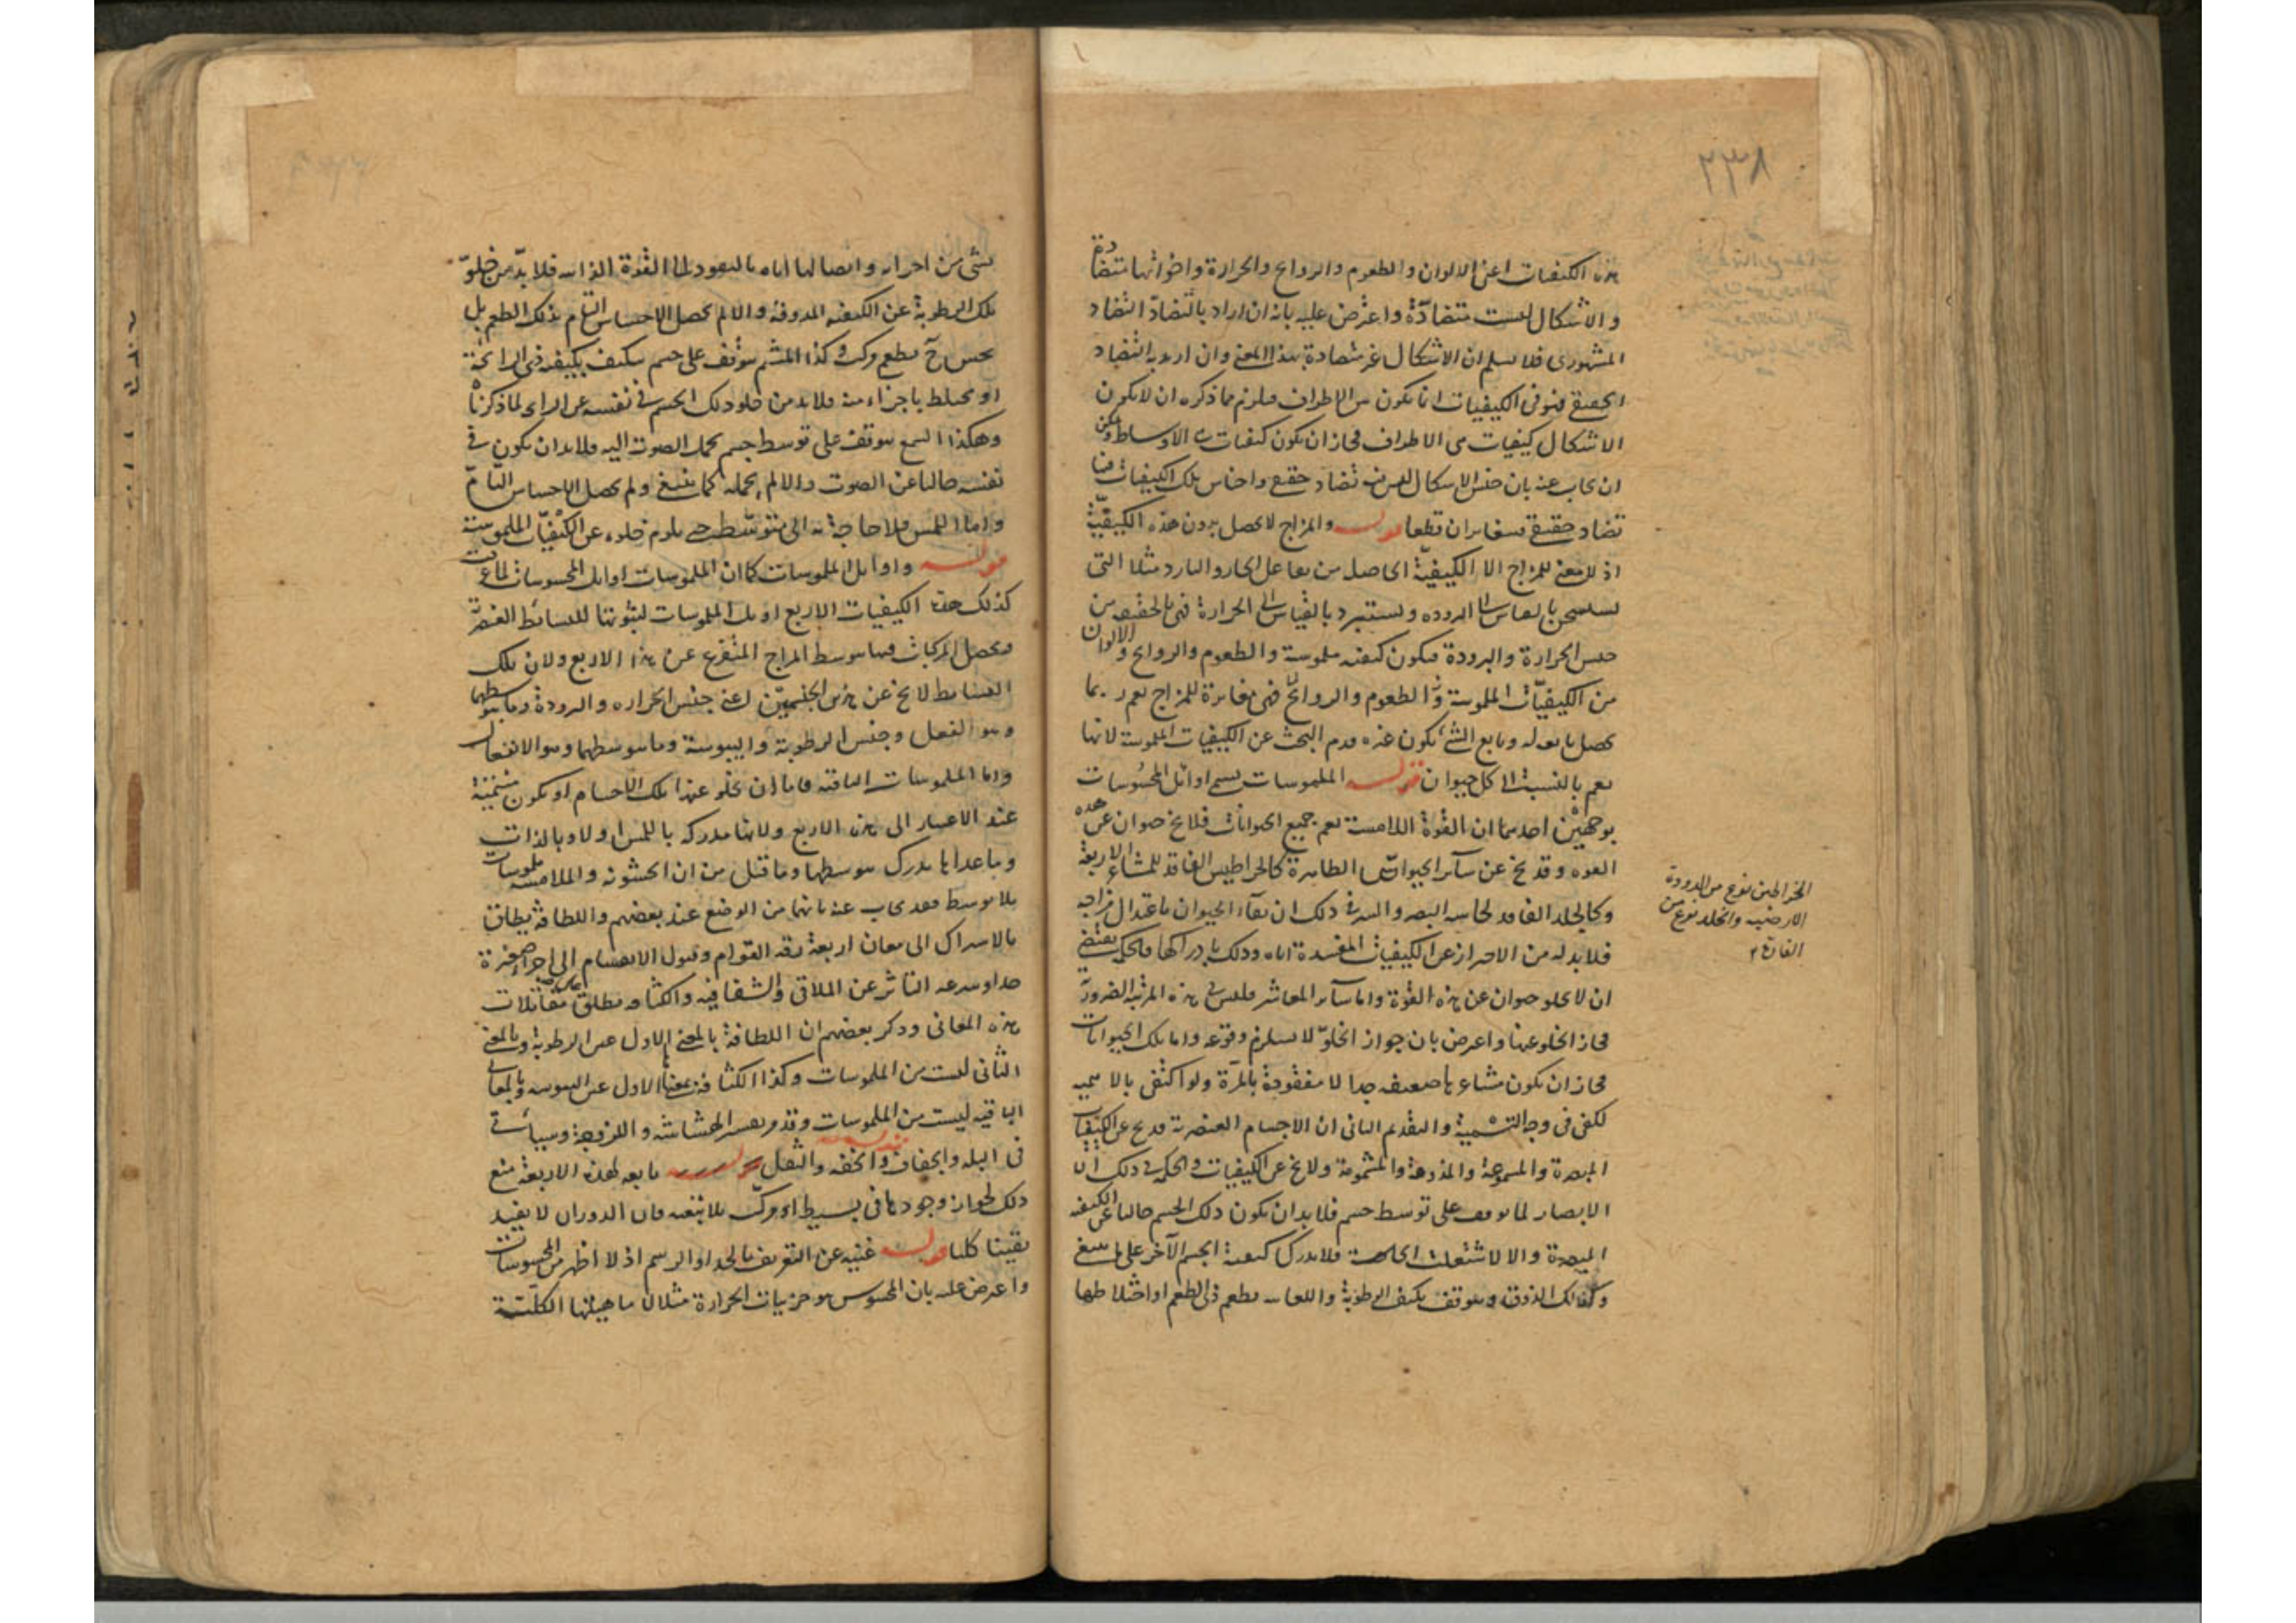 ٢٣٨
هذه الكيفيات اعنى الالوان والطعوم والروايح والحرارة واخواتها متضادة
والاشكال ليست متضادّة واعترض عليه بانه ان اراد بالتضادّ التضاد
المشهورى فلا نسلم ان الاشكال غير متضادة بهذا المعنى وان اريد به التضاد
الحقيقى فهو فى الكيفيات انما يكون بين الاطراف فيلزم مما ذكره ان لا يكون
الاشكال كيفيات هى الاطراف فجاز ان يكون كيفيات هى الاوساط ويمكن
ان يجاب عنه بان جنس الاشكال ليس فيه تضاد حقيقى واجناس تلك الكيفيات فيها
تضاد حقيقى فيتغايران قطعا قوله والمزاج لا يحصل بدون هذه الكيفيّة
اذ لا معنى للمزاج الا الكيفيّة الحاصل من تفاعل الحار والبارد مثلا التى
تستسخن بالقياس الى البرودة وتستبرد بالقياس الى الحرارة فهى بالحقيقه من
جنس الحرارة والبرودة فيكون كيفيه ملموسة والطعوم والروايح والالوان
من الكيفيّات الملموسة والطعوم والروائح فهى مغايرة للمزاج نعم ربما
يحصل تابعه له وتابع الشئ يكون غيره قدم البحث عن الكيفيات الملموسة لانها
نعم بالنسبة الى كل حيوان قوله الملموسات تسمى اوائل المحسوسات
بوجهين احدهما ان القوة اللامسة تعم جميع الحيوانات فلا يخ حيوان عن هذه
القوه وقد يخ عن سائر الحواس الظاهرة كالخراطين الفاقد للمشاعر الاربعة
وكالخلد الفاقد لحاسه البصر والسر فى ذلك ان بقاء الحيوان باعتدال مزاجه
فلا بد له من الاحتراز عن الكيفيات المفسدة اياه وذلك بادراكها فالحكمة يقتضى
ان لا يخلو حيوان عن هذه القوة واما سائر المشاعر فليس فى هذه المرتبة الضرورة
فجاز الخلو عنها واعترض بان جواز الخلوّ لا يستلزم وقوعه واما تلك الحيوانات
فجاز ان يكون مشاعرها ضعيفه جدا لا مفقودة بالمرّة ولو اكتفى بالاسميه
لكفى فى وجه التسمية والتقديم الثانى ان الاجسام العنصرية قد يخ عن الكيفيات
المبصرة والمسموعة والمذوقة والمشمومة ولا يخ عن الكيفيات والحكم فى ذلك ان
الابصار لما توقف على توسط جسم فلا بد ان يكون ذلك الجسم خاليا عن الكيفيه
المبصرة والا لاشتغلت الحاسة فلا يدرك كيفية الجسم الآخر على ما ينبغى
وكذلك الذوق يتوقف بكيف الرطوبة واللعاب بطعم ذى الطعم او اختلاطها
الخراطين نوع من الدودة
الارضيه والخلد نوع من
الفارة
بشئ من اجزائه وايصالها اياه بالنفوذ الى القوة الذائقه فلا بدّ من خلوّ
تلك الرطوبة عن الكيفيه المذوقة والا لم يحصل الاحساس التام بذلك الطعم بل
يحس ح بطعم مركب وكذا الشم يتوقف على جسم يتكيف بكيفيه ذى الرائحة
او يختلط باجزاء منه فلا بد من خلو ذلك الجسم فى نفسه عن الرائحة لما ذكرنا
وهكذا السمع يتوقف على توسط جسم يحمل الصوت اليه فلا بد ان يكون فى
نفسه خاليا عن الصوت والا لم يحمله كما ينبغى ولم يحصل الاحساس التّامّ
واما اللمس فلا حاجة به الى متوسط حتى يلزم خلوه عن الكيفيّات الملموسة
قوله واوائل الملموسات كما ان الملموسات اوائل المحسوسات لما عرفت
كذلك هذه الكيفيات الاربع اوائل الملموسات لثبوتها للبسائط العنصرية
وتحصل المركبات فيها بتوسط المزاج المتفرع عن هذا الاربع ولان تلك
البسائط لا يخ عن هذين الجنسين اعنى جنس الحراره والبرودة وما يتوسطهما
وهو الفعل وجنس الرطوبة واليبوسة وما يتوسطهما وهو الانفعال
واما الملموسات الباقيه فاما ان يخلو عنها تلك الاجسام او يكون منتمية
عند الاعتبار الى هذه الاربع ولانها مدركه باللمس اولا وبالذات
وما عداها يدرك بتوسطها وما قيل من ان الخشونه والملاسة ملموسات
بلا توسط فقد يجاب عنه بانهما من الوضع عند بعضهم واللطافة يطلق
بالاشراك الى معان اربعة رقه القوام وقبول الانقسام الى اجزاء صغيرة
جدا وسرعه التاثر عن الملاقى والشفافيه والكثافه يطلق على مقابلات
هذه المعانى وذكر بعضهم ان اللطافة بالمعنى الاول عين الرطوبة وبالمعنى
الثانى ليست من الملموسات وكذا الكثافة بمعناها الاول عين اليبوسه وبالمعانى
الباقيه ليست من الملموسات وقد مر تفسير الهشاشه واللزوجة وسيأتى
فى البله والجفاف والخفه والثقل قوله تابعه لهذه الاربعة منع
ذلك لجواز وجودها فى بسيط او مركّب بلا تبعيه فان الدوران لا يفيد
يقينا كليا قوله غنيه عن التعريف بالحد او الرسم اذ لا اظهر من المحسوسات
واعترض عليه بان المحسوس هو جزئيات الحرارة مثلا لا ماهيتها الكليّة